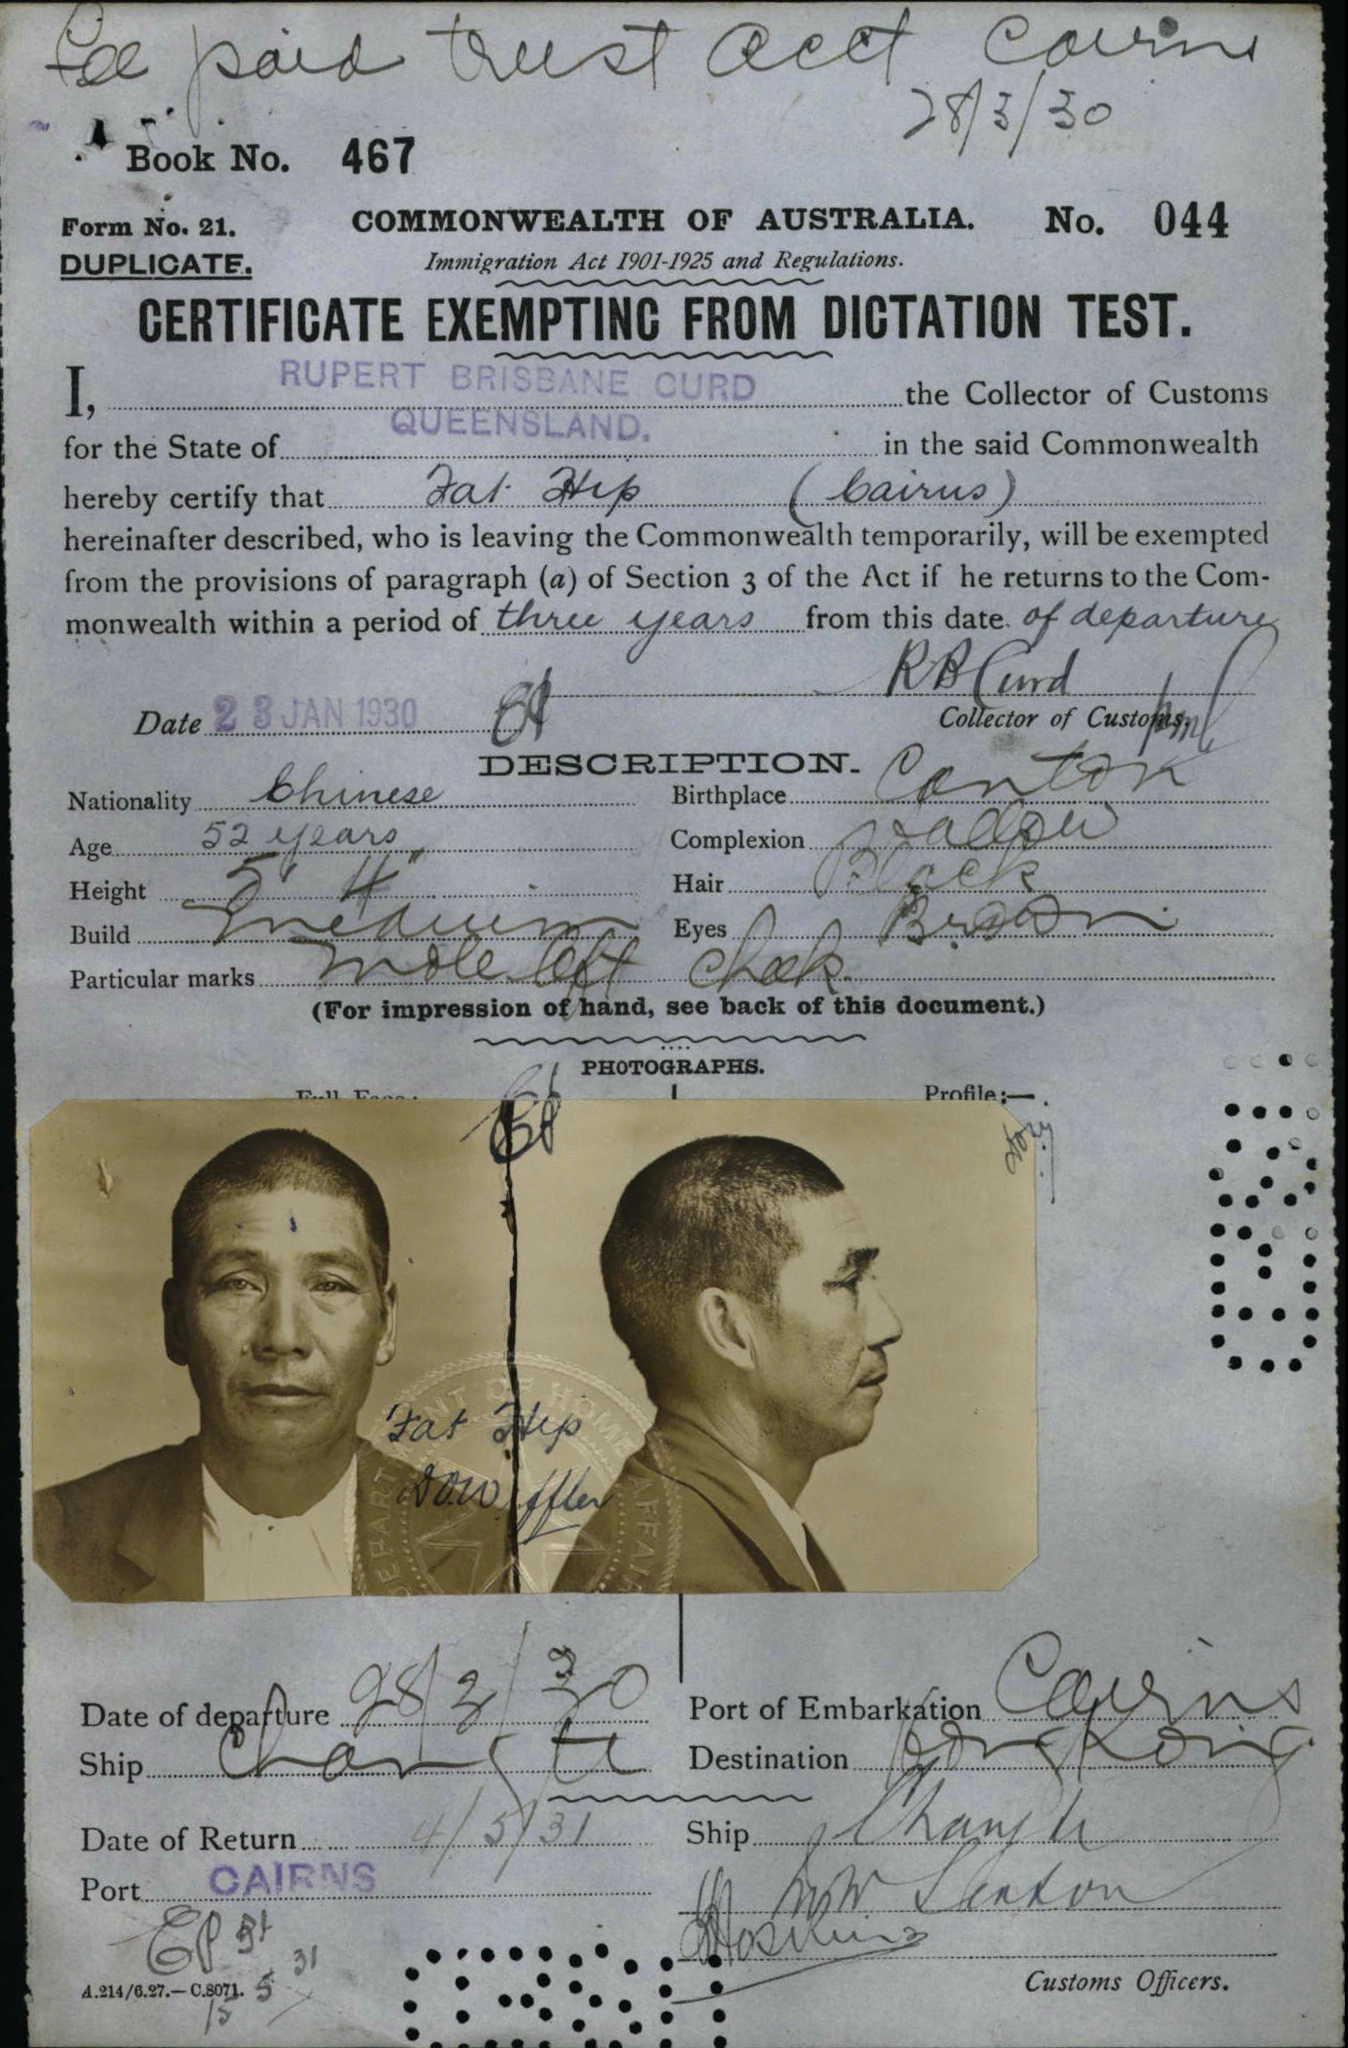 Fee paid trust acct Cairns
28/3/30
Book No. 467
Form No. 21. COMMONWEALTH OF AUSTRALIA. No. 044
DUPLICATE. Immigration Act 1901-1925 and Regulations.
CERTIFICATE EXEMPTING FROM DICTATION TEST.
I, RUPERT BRISBANE CURD the Collector of Customs
for the State of QUEENSLAND. in the said Commonwealth
hereby certify that Fat Hip (Cairns)
hereinafter described, who is leaving the Commonwealth temporarily, will be exempted
from the provisions of paragraph (a) of Section 3 of the Act if he returns to the Com-
monwealth within a period of three years from this date of departure
R B Curd
Date 23 JAN 1930 Collector of Customs.
DESCRIPTION.
Nationality Chinese Birthplace Canton
Age 52 years Complexion Sallow
Height 5' 4" Hair Black
Build medium Eyes Brown
Particular marks mole left cheek
(For impression of hand, see back of this document.)
PHOTOGRAPHS.
Full Face: Profile:—
Fat Hip
DEPARTMENT OF HOME AFFAIRS
Date of departure 28/3/30 Port of Embarkation Cairns
Ship Changte Destination Hong Kong
Date of Return 4/5/31 Ship Changte
Port CAIRNS
Customs Officers.
A.214/6.27.—C.8071.
15 5 31